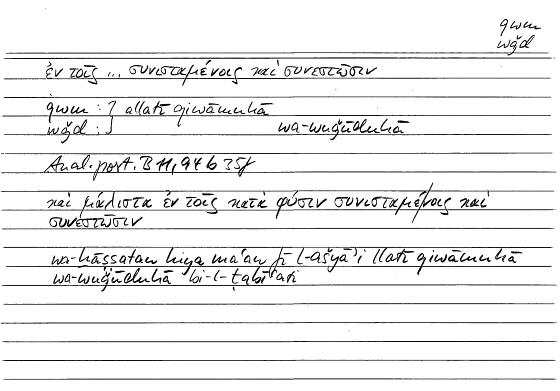 qwm
wǧd
ἐν τοῖς ... συνισταμένοις καὶ συνεστῶσιν
qwm : } allatī qiwāmuhā
wǧd : } wa-wuǧūduhā
Anal. post. B 11, 94 b 35f
καὶ μάλιστα ἐν τοῖς κατὰ φύσιν συνισταμένοις καὶ
συνεστῶσιν
wa-ḫāṣṣatan hiya maʿan fī l-ašyāʾi llatī qiwāmuhā
wa-wuǧūduhā bi-l-ṭabīʿati